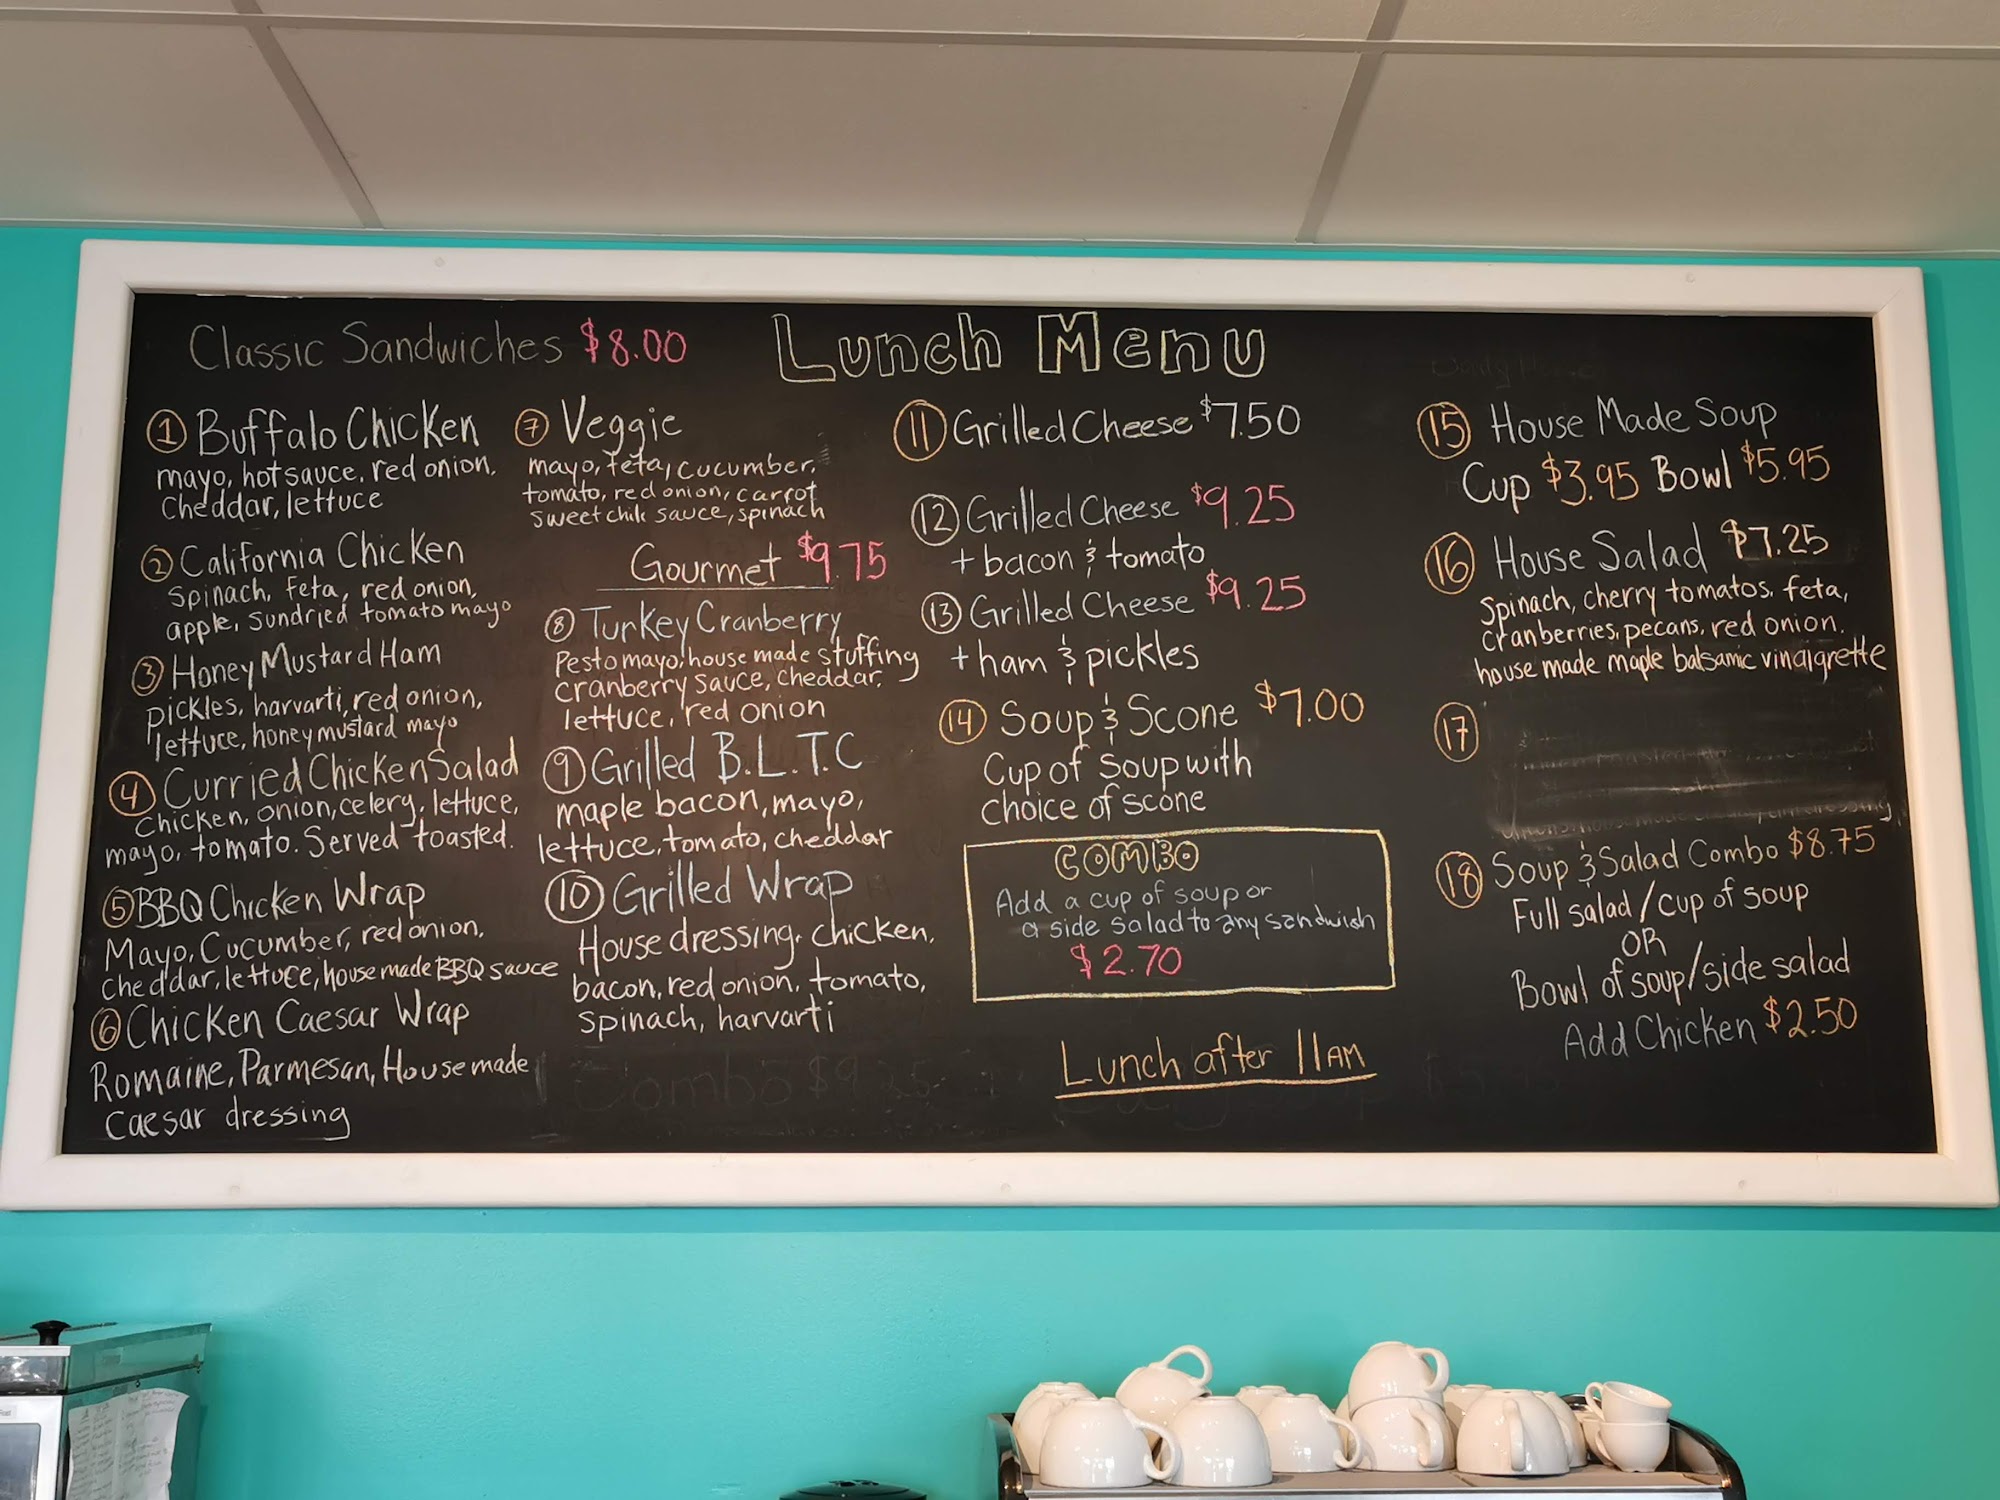 Classic Sandwiches $8.00
Lunch Menu
① Buffalo Chicken
mayo, hot sauce, red onion,
Cheddar, lettuce
② California Chicken
Spinach, feta, red onion,
apple, sundried tomato mayo
③ Honey Mustard Ham
pickles, harvarti, red onion,
lettuce, honey mustard mayo
④ Curried Chicken Salad
Chicken, onion, celery, lettuce,
mayo, tomato. Served toasted.
⑤ BBQ Chicken Wrap
Mayo, Cucumber, red onion,
cheddar, lettuce, house made BBQ sauce
⑥ Chicken Caesar Wrap
Romaine, Parmesan, House made
Caesar dressing
⑦ Veggie
mayo, feta, cucumber,
tomato, red onion, carrot
sweet chili sauce, spinach
Gourmet $9.75
⑧ Turkey Cranberry
Pesto mayo, house made stuffing
cranberry sauce, cheddar,
lettuce, red onion
⑨ Grilled B.L.T.C
maple bacon, mayo,
lettuce, tomato, cheddar
⑩ Grilled Wrap
House dressing, chicken,
bacon, red onion, tomato,
spinach, harvarti
⑪ Grilled Cheese $7.50
⑫ Grilled Cheese $9.25
+ bacon & tomato
⑬ Grilled Cheese $9.25
+ ham & pickles
⑭ Soup & Scone $7.00
Cup of soup with
choice of scone
COMBO
Add a cup of soup or
a side salad to any sandwich
$2.70
Lunch after 11AM
⑮ House Made Soup
Cup $3.95 Bowl $5.95
⑯ House Salad $7.25
Spinach, cherry tomatos, feta,
Cranberries, pecans, red onion.
house made maple balsamic vinaigrette
⑰
⑱ Soup & Salad Combo $8.75
Full salad/cup of soup
OR
Bowl of soup/side salad
Add Chicken $2.50